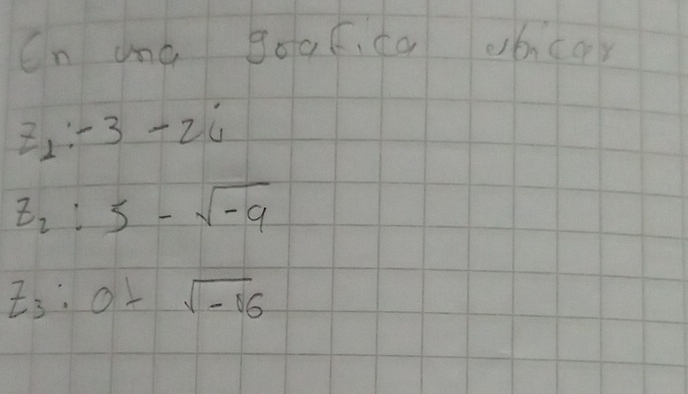 En una grafica ubicar
z₁: -3 - 2i
z₂: 5 - √-9
z₃: 0 + √-16